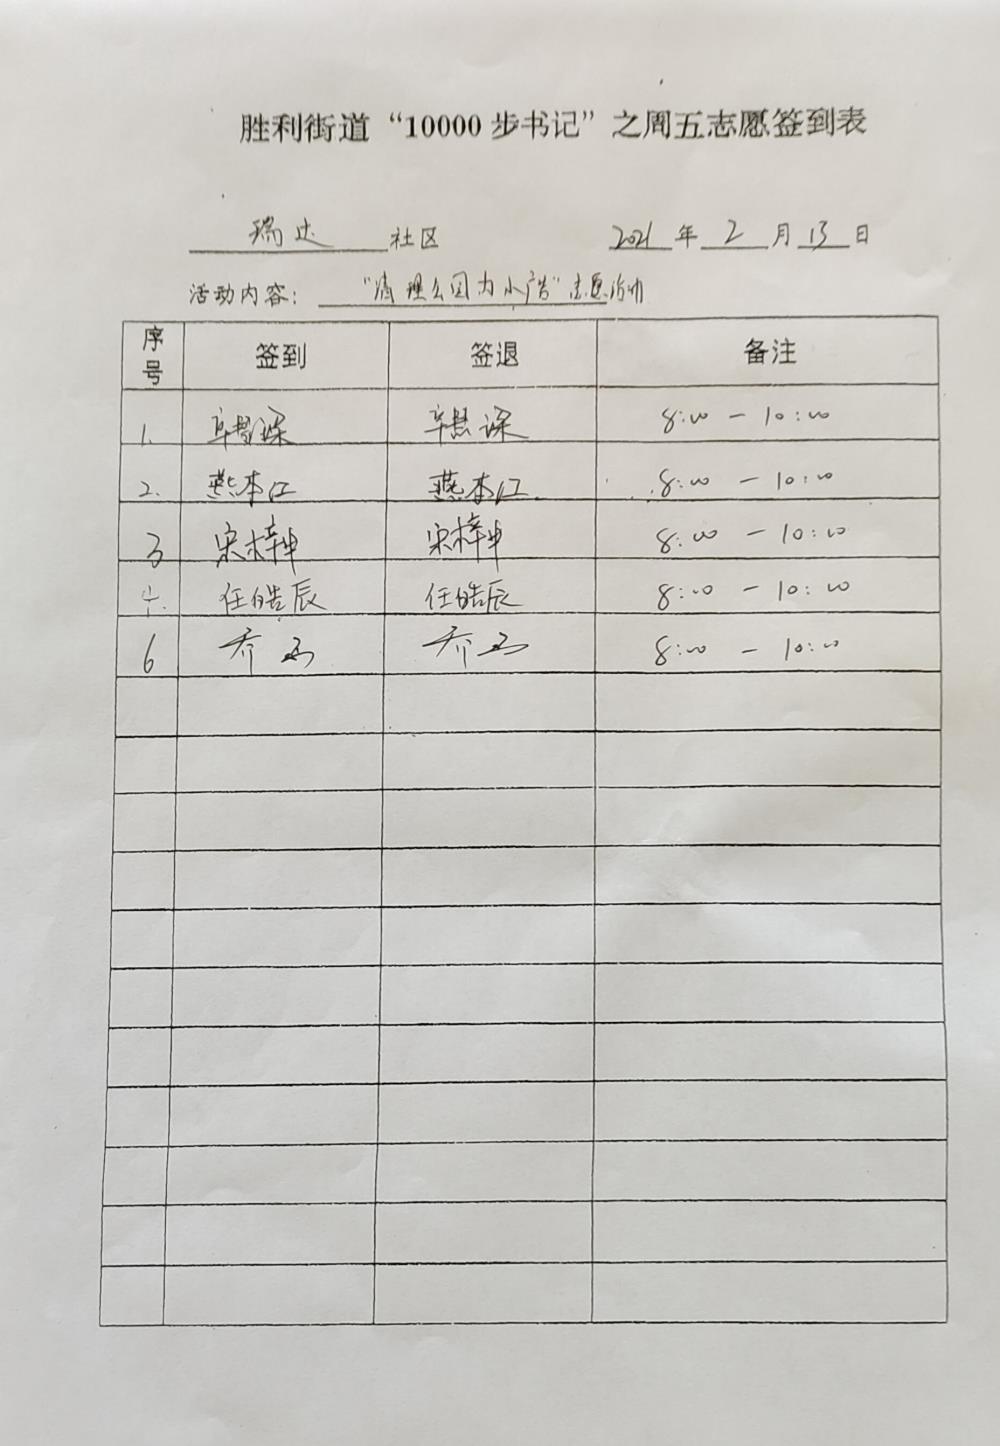 胜利街道“10000步书记”之周五志愿签到表
瑞达社区 2021年2月13日
活动内容：“清理公园内小广告”志愿活动
序号 签到 签退 备注
1. 8:00 — 10:00
2. 燕本江 燕本江 8:00 — 10:00
3 宋梓申 宋梓申 8:00 — 10:00
4. 任皓辰 任皓辰 8:00 — 10:00
6 乔 乔 8:00 — 10:00